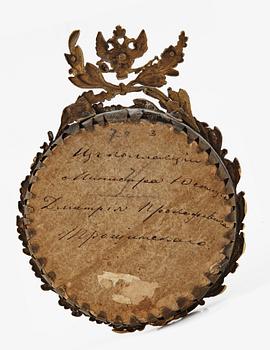 7 0 3
Изъ коллекціи
Министра Юстиціи
Дмитрія Прокофьевича
Трощинскаго.